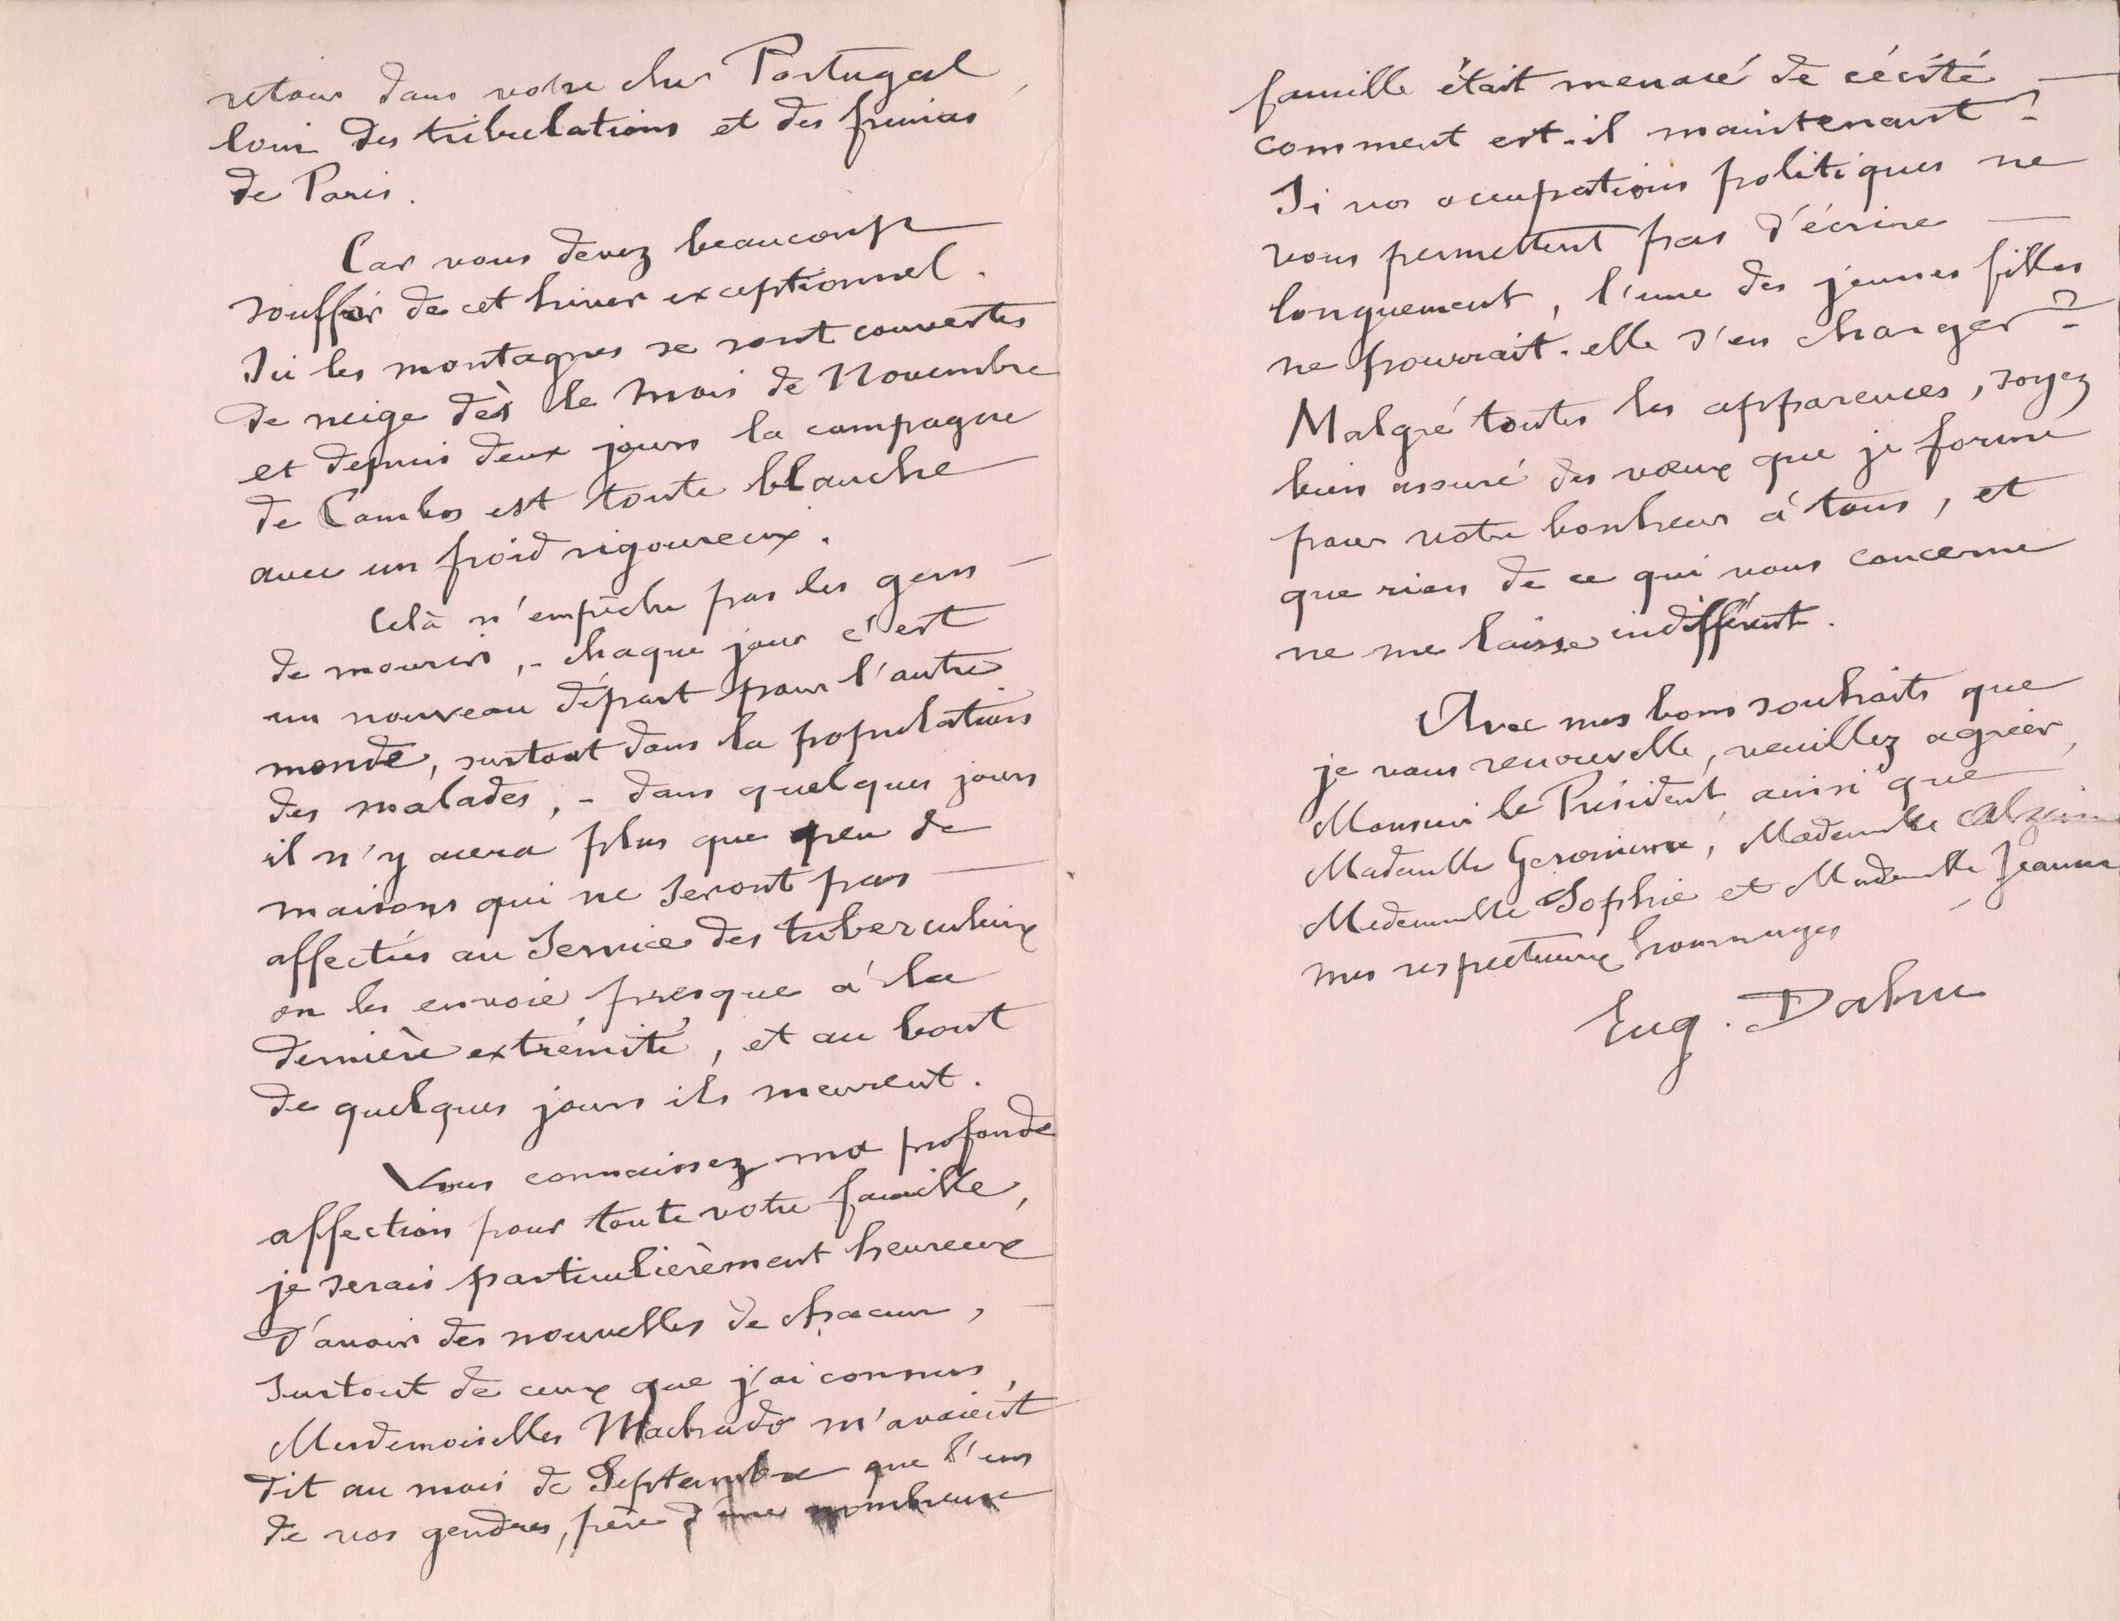 retour dans votre cher Portugal,
loin des tribulations et des frimas
de Paris.
Car vous devez beaucoup
souffrir de cet hiver exceptionnel.
Ici les montagnes se sont couvertes
de neige dès le mois de Novembre
et depuis deux jours la campagne
de Cambo est toute blanche
avec un froid rigoureux.
Celà n'empêche pas les gens
de mourir, - chaque jour c'est
un nouveau départ pour l'autre
monde, surtout dans la population
des malades, - dans quelques jours
il n'y aura plus que peu de
maisons qui ne seront pas
affectées au service des tuberculeux
on les envoie presque à la
dernière extrémité, et au bout
de quelques jours ils meurent.
Vous connaissez ma profonde
affection pour toute votre famille,
je serais particulièrement heureux
d'avoir des nouvelles de chacun,
surtout de ceux que j'ai connus,
Mesdemoiselles Machado m'avaient
dit au mois de Septembre que l'un
de vos gendres, père d'une nombreuse
famille était menacé de cécité
comment est-il maintenant ?
Si vos occupations politiques ne
vous permettent pas d'écrire
longuement, l'une des jeunes filles
ne pourrait-elle s'en charger ?
Malgré toutes les apparences, soyez
bien assuré des vœux que je forme
pour votre bonheur à tous, et
que rien de ce qui vous concerne
ne me laisse indifférent.
Avec mes bons souhaits que
je vous renouvelle, veuillez agréer,
Monsieur le Président, ainsi que
Mademelle, Mademelle
Mademelle Sophie et Mademelle Jeanne
mes respectueux hommages
Eug.